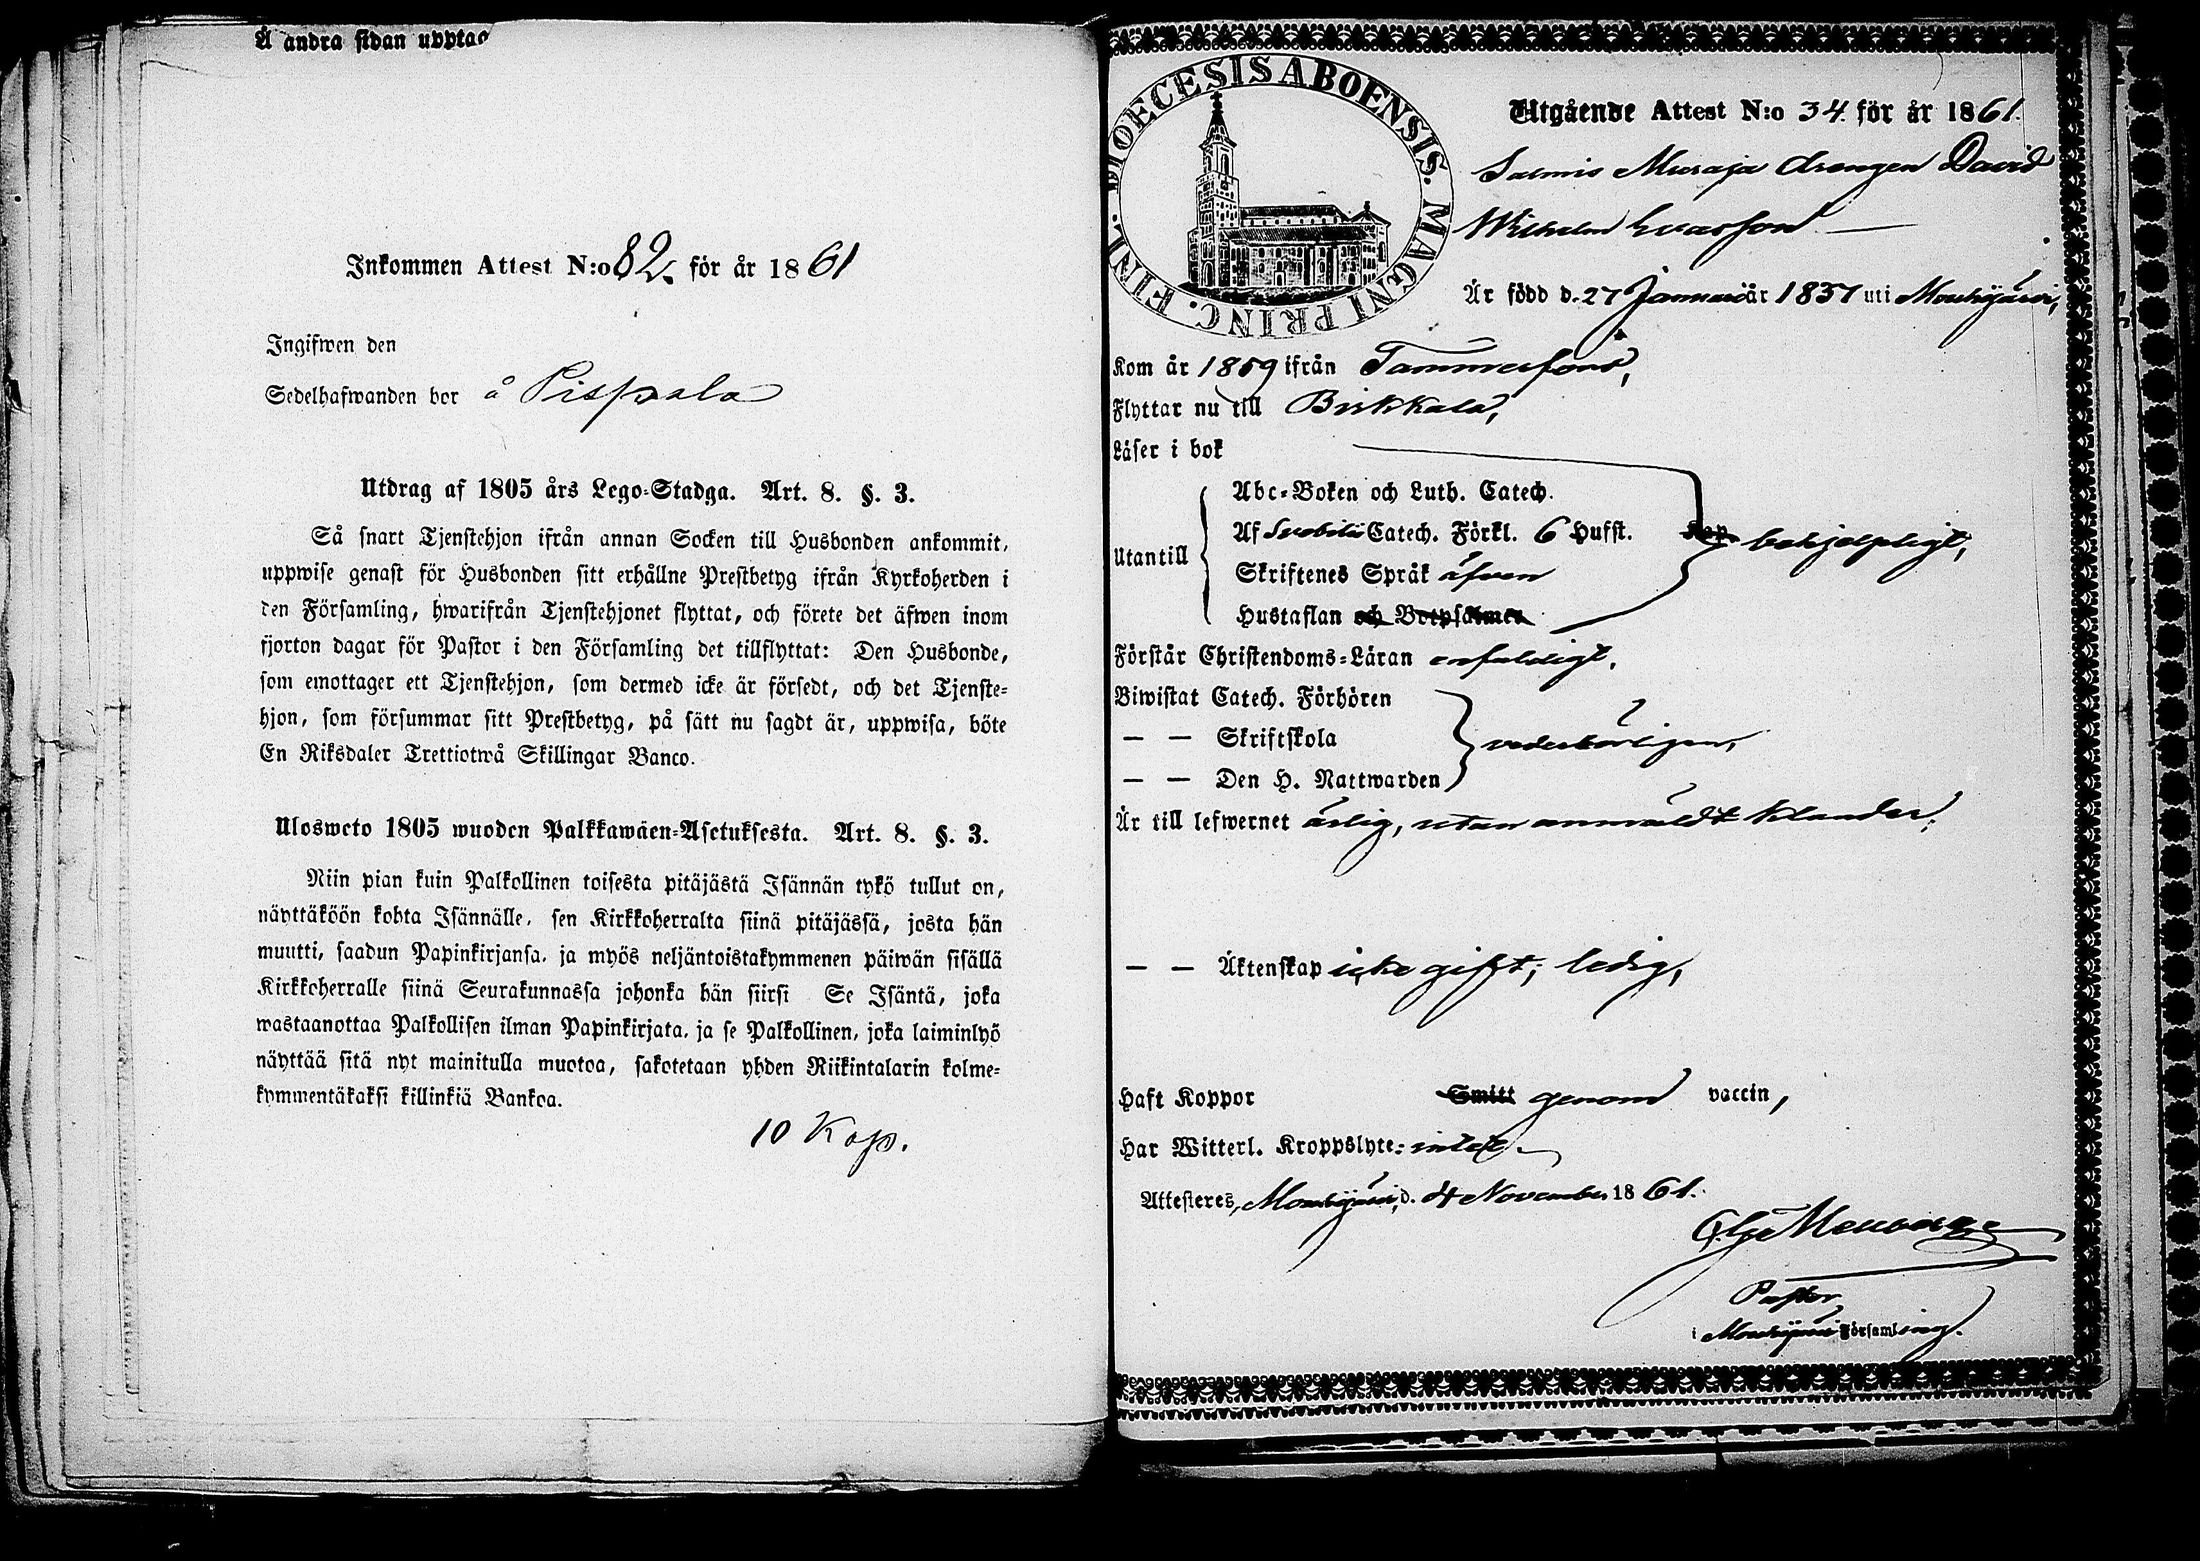 Å andra sidan upptag
Inkommen Attest N:o 82. för år 1861
Ingifwen den
Sedelhafwanden bor å Pispala
Utdrag af 1805 års Lego-Stadga. Art. 8. §. 3.
Så snart Tjenstehjon ifrån annan Socken till Husbonden ankommit,
uppwise genast för Husbonden sitt erhållne Prestbetyg ifrån Kyrkoherden i
den Församling, hwarifrån Tjenstehjonet flyttat, och förete det äfwen inom
fjorton dagar för Pastor i den Församling det tillflyttat: Den Husbonde,
som emottager ett Tjenstehjon, som dermed icke är försedt, och det Tjenste-
hjon, som försummar sitt Prestbetyg, på sätt nu sagdt är, uppwisa, böte
En Riksdaler Trettiotwå Skillingar Banco.
Ulosweto 1805 wuoden Palkkawäen-Asetuksesta. Art. 8. §. 3.
Niin pian kuin Palkollinen toisesta pitäjästä Isännän tykö tullut on,
näyttäköön kohta Isännälle, sen Kirkkoherralta siinä pitäjässä, josta hän
muutti, saadun Papinkirjansa, ja myös neljäntoistakymmenen päiwän sisällä
Kirkkoherralle siinä Seurakunnassa johonka hän siirsi Se Isäntä, joka
wastaanottaa Palkollisen ilman Papinkirjata, ja se Palkollinen, joka laiminlyö
näyttää sitä nyt mainitulla muotoa, sakotetaan yhden Riikintalarin kolme-
kymmentäkaksi killinkiä Bankoa.
10 Kop.
DIOECESIS ABOENSIS. MAGNI PRINC. FINL.
Utgående Attest N:o 34. för år 1861.
Salmis Muraja drengen David
Wilhelm Evasson
Är född d. 27 Januari år 1837 uti Mouhijärvi,
Kom år 1859 ifrån Tammerfors,
Flyttar nu till Birkkala,
Läser i bok
Abc-Boken och Luth. Catech.
Utantill
Af Svebilii Catech. Förkl. 6 Hufst. behjelpligt,
Skriftenes Språk äfven
Hustaflan och Botpsalmer
Förstår Christendoms-Läran enfaldigt,
Biwistat Catech. Förhören
— — Skriftskola vederbörligen,
— — Den H. Nattwarden
Är till lefwernet ärlig, utan anmäldt klander;
— — Äktenskap icke gift; ledig,
Haft Koppor Smitt genom vaccin,
Har Witterl. Kroppslyte: intet.
Attesteres, Mouhijärvi, d. 4 November 1861.
Pastor
i Mouhijärvi Församling.